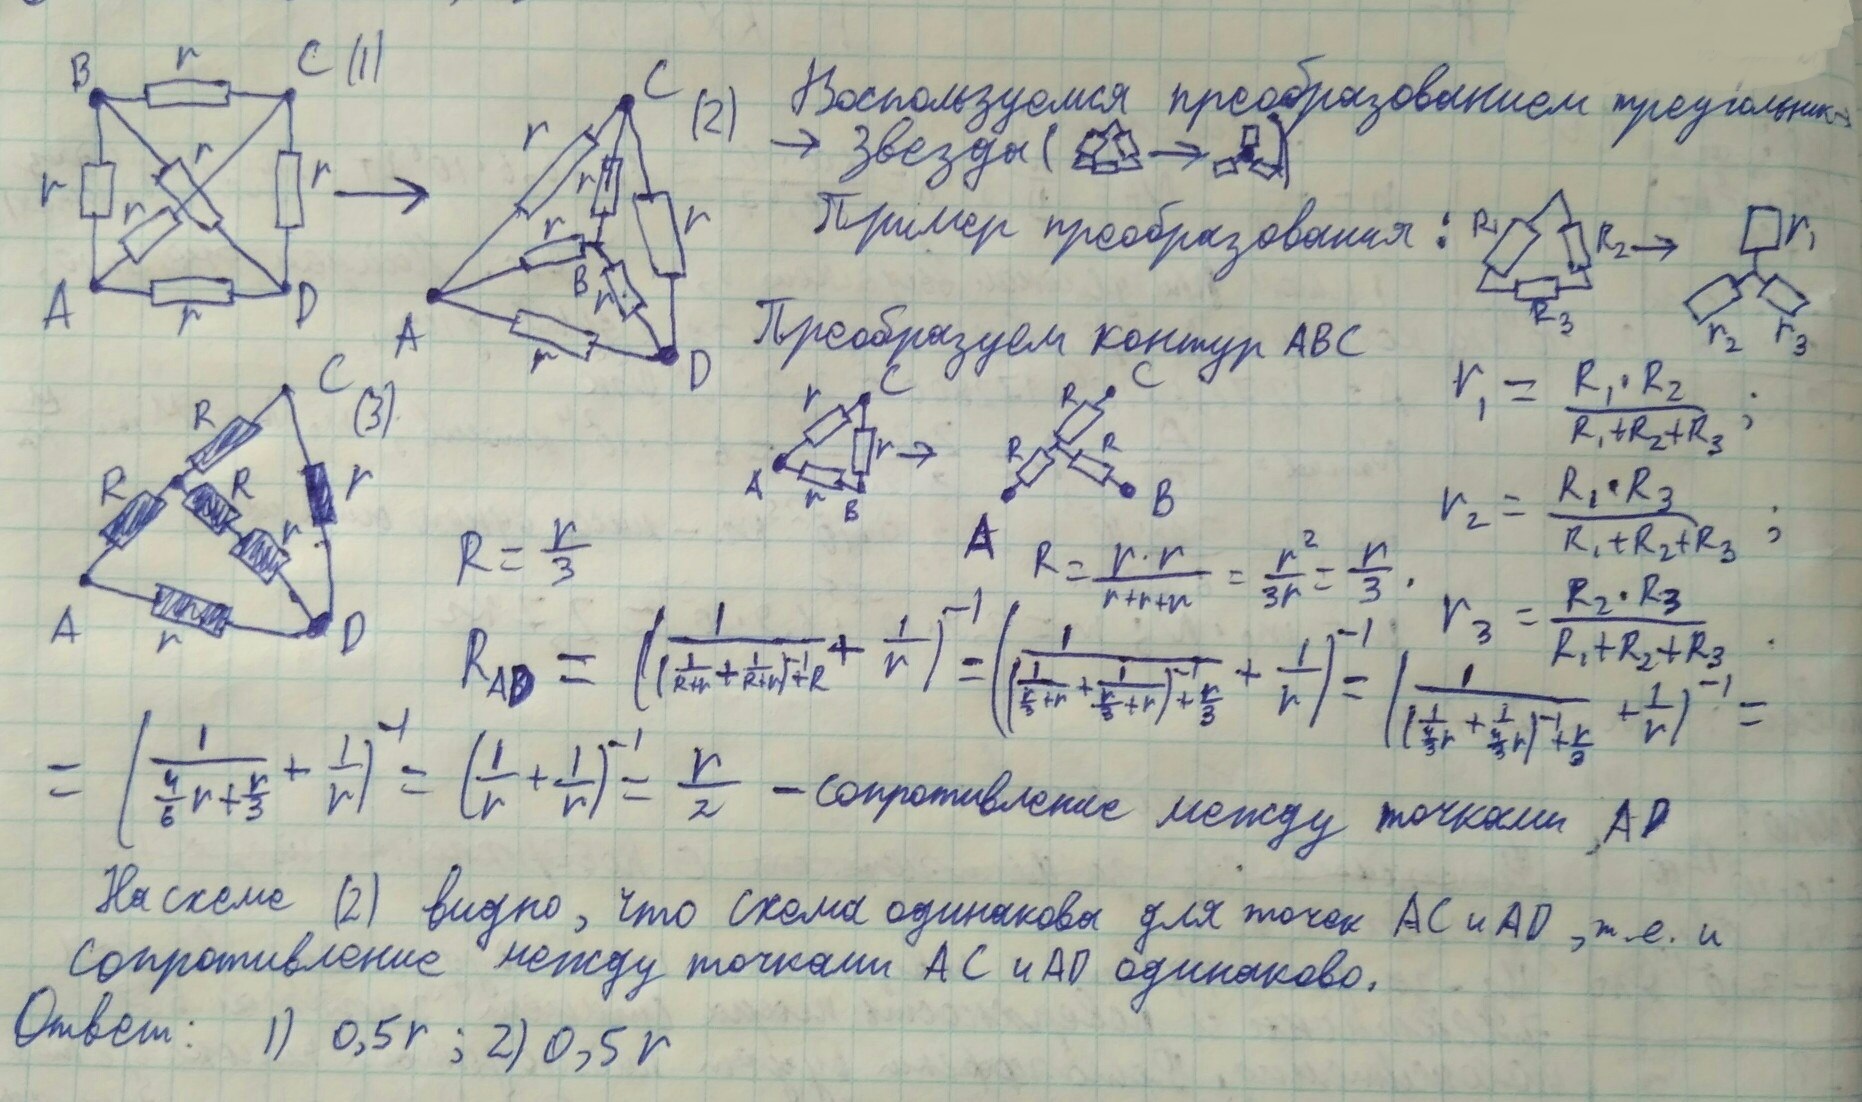 B r C (1)
r r r r
A r D
C (2)
r r r
r B r
A r D
Воспользуемся преобразованием треугольник →
→ Звезда ( → )
Пример преобразования : R₁ R₂ → r₁
R₃ r₂ r₃
Преобразуем контур ABC
r C r → A r B
C R R R A B
r₁ = (R₁·R₂)/(R₁+R₂+R₃) ;
r₂ = (R₁·R₃)/(R₁+R₂+R₃) ;
r₃ = (R₂·R₃)/(R₁+R₂+R₃) .
C (3)
R R R r r
A r D
R = r/3
R = (r·r)/(r+r+r) = r²/3r = r/3 .
R_AD = (1/((1/(R+r) + 1/(R+r))⁻¹+R) + 1/r)⁻¹ = (1/((1/(r/3+r) + 1/(r/3+r))⁻¹ + r/3) + 1/r)⁻¹ = (1/((1/(4/3 r) + 1/(4/3 r))⁻¹ + r/3) + 1/r)⁻¹ =
= (1/(4/6 r + r/3) + 1/r)⁻¹ = (1/r + 1/r)⁻¹ = r/2 – сопротивление между точками AD
На схеме (2) видно, что схема одинакова для точек AC и AD, т.е. и
сопротивление между точками AC и AD одинаково.
Ответ: 1) 0,5r ; 2) 0,5r